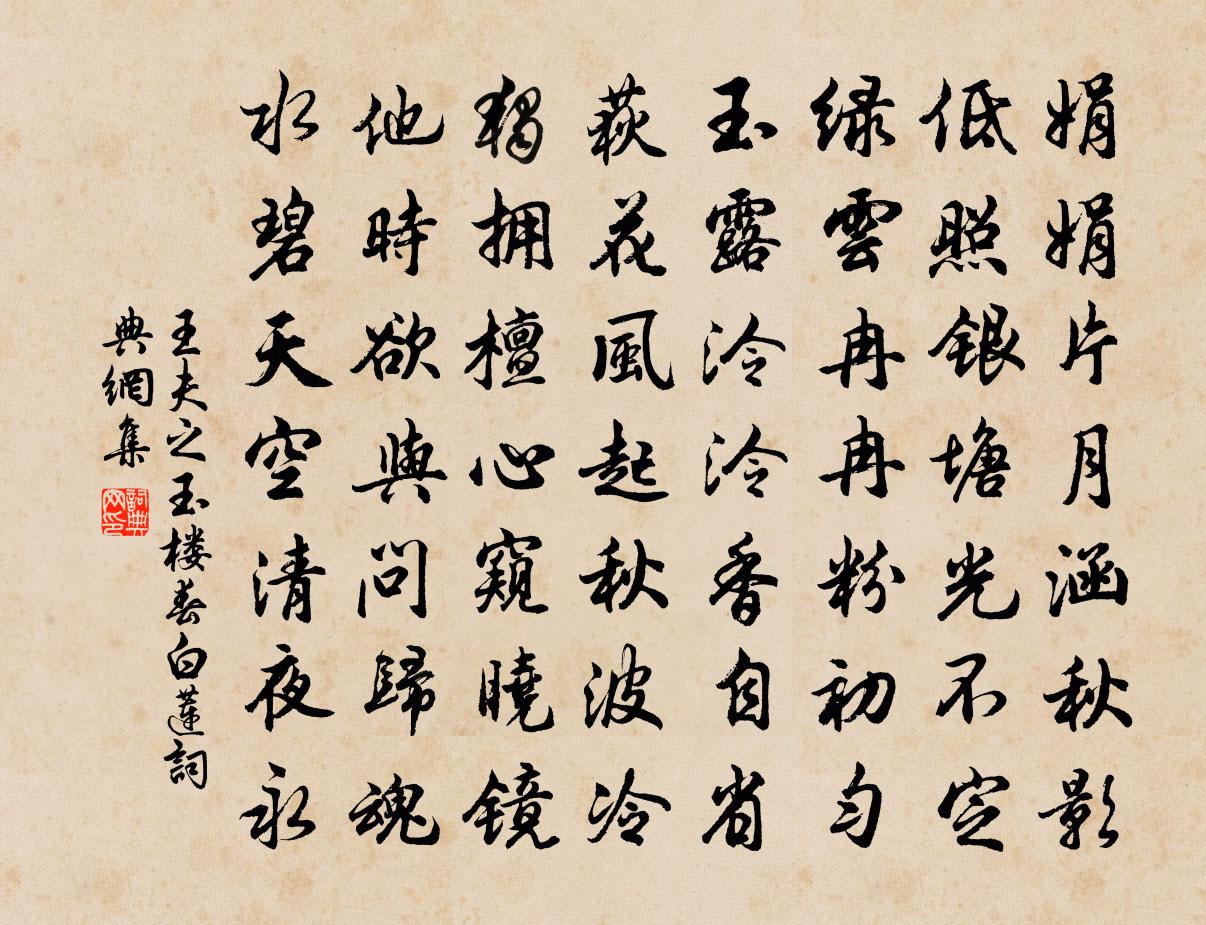 娟娟片月涵秋影
低照銀塘光不定
綠雲冉冉粉初勻
玉露泠泠香自省
荻花風起秋波冷
獨拥檀心窺曉镜
他時欲與問歸魂
水碧天空清夜永
王夫之玉楼春白蓮詞
典網集
詞典网印